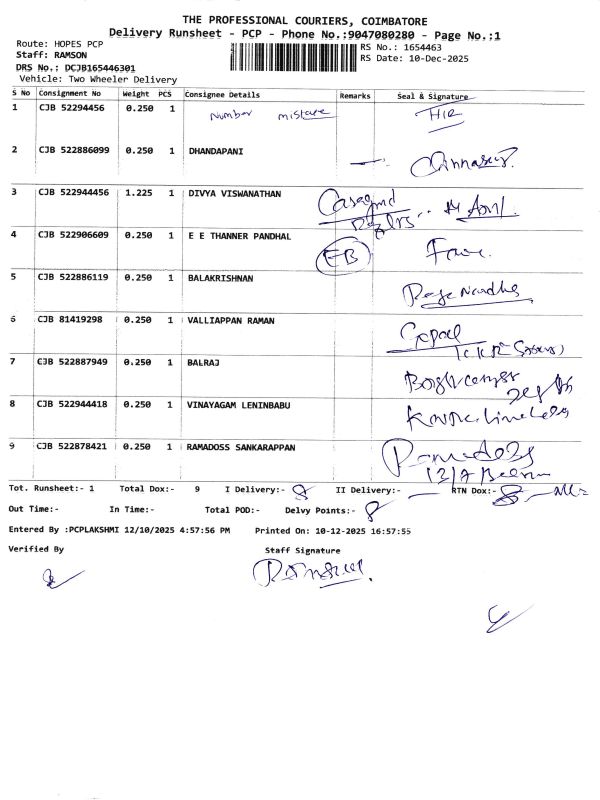 THE PROFESSIONAL COURIERS, COIMBATORE
Delivery Runsheet - PCP - Phone No.:9047080280 - Page No.:1
Route: HOPES PCP
Staff: RAMSON
DRS No.: DCJB165446301
Vehicle: Two Wheeler Delivery
RS No.: 1654463
RS Date: 10-Dec-2025
S No Consignment No Weight PCS Consignee Details Remarks Seal & Signature
1 CJB 52294456 0.250 1 Number mistake
2 CJB 522886099 0.250 1 DHANDAPANI
3 CJB 522944456 1.225 1 DIVYA VISWANATHAN
4 CJB 522906609 0.250 1 E E THANNER PANDHAL EB
5 CJB 522886119 0.250 1 BALAKRISHNAN
6 CJB 81419298 0.250 1 VALLIAPPAN RAMAN Gopal
7 CJB 522887949 0.250 1 BALRAJ
8 CJB 522944418 0.250 1 VINAYAGAM LENINBABU
9 CJB 522878421 0.250 1 RAMADOSS SANKARAPPAN
Tot. Runsheet:- 1 Total Dox:- 9 I Delivery:- 8 II Delivery:- RTN Dox:-
Out Time:- In Time:- Total POD:- Delvy Points:- 8
Entered By :PCPLAKSHMI 12/10/2025 4:57:56 PM Printed On: 10-12-2025 16:57:55
Verified By Staff Signature